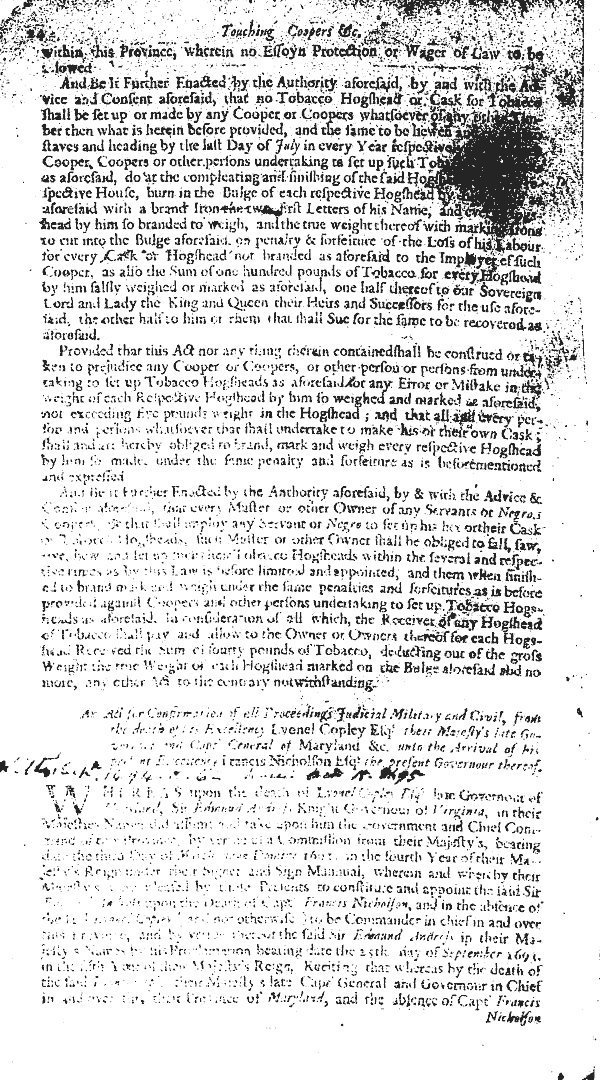 24 Touching Coopers &c.
within this Province, wherein no Essoyn Protection or Wager of Law to be
allowed
And Be It Further Enacted by the Authority aforesaid, by and with the Ad-
vice and Consent aforesaid, that no Tobacco Hogshead or Cask for Tobacco
shall be set up or made by any Cooper or Coopers whatsoever of any other Tim-
ber then what is herein before provided, and the same to be hewen
staves and heading by the last Day of July in every Year respectively
Cooper, Coopers or other persons undertaking to set up such
as aforesaid, do at the compleating and finishing of the said
spective House, burn in the Bulge of each respective Hogshead by
aforesaid with a brand Iron the two first Letters of his Name, and
head by him so branded to weigh, and the true weight thereof with marking Irons
to cut into the Bulge aforesaid, on penalty & forfeiture of the Loss of his Labour
for every Cask or Hogshead not branded as aforesaid to the Imployer of such
Cooper, as also the Sum of one hundred pounds of Tobacco for every Hogshead
by him falsly weighed or marked as aforesaid, one half thereof to our Sovereign
Lord and Lady the King and Queen their Heirs and Successors for the use afore-
said, the other half to him or them that shall Sue for the same to be recovered as
aforesaid.
Provided that this Act nor any thing therein contained shall be construed or ta-
ken to prejudice any Cooper or Coopers, or other person or persons from under-
taking to set up Tobacco Hogsheads as aforesaid for any Error or Mistake in the
weight of each Respective Hogshead by him so weighed and marked as aforesaid,
not exceeding five pounds weight in the Hogshead ; and that all and every per-
son and persons whatsoever that shall undertake to make his or their own Cask ;
shall and are hereby obliged to brand, mark and weigh every respective Hogshead
by him so made, under the same penalty and forfeiture as is beforementioned
and expressed
And Be it Further Enacted by the Authority aforesaid, by & with the Advice &
Consent aforesaid, that every Master or other Owner of any Servants or Negro,s
Coopers, that shall employ any Servant or Negro to set up his her or their Cask
or Tobacco Hogsheads, such Master or other Owner shall be obliged to fall, saw,
rive, hew and set up such their Tobacco Hogsheads within the several and respec-
tive times as by this Law is before limited and appointed, and them when finish-
ed to brand mark and weigh under the same penalties and forfeitures as is before
provided against Coopers and other persons undertaking to set up Tobacco Hogs-
heads as aforesaid. In consideration of all which, the Receiver of any Hogshead
of Tobacco shall pay and allow to the Owner or Owners thereof for each Hogs-
head Received the Sum of fourty pounds of Tobacco, deducting out of the gross
Weight the true Weight of each Hogshead marked on the Bulge aforesaid and no
more, any other Act to the contrary notwithstanding.
An Act for Confirmation of all Proceedings Judicial Military and Civil, from
the death of his Excellency Lyonel Copley Esqr their Majesty's late Go-
vernour and Capt General of Maryland &c. unto the Arrival of his
Excellency Francis Nicholson Esqr the present Governour thereof.
WHEREAS upon the death of Lyonel Copley Esqr late Governour of
Maryland, Sir Edmund Andros Knight Governour of Virginia, in their
Majesties Names did assume and take upon him the Government and Chief Com-
mand of this Province, by vertue of a Commission from their Majesty's, bearing
date the third Day of March in the fourth Year of their Ma-
jesty's Reign under their Signet and Sign Manual, wherein and whereby their
Majesty's pleased by these Presents to constitute and appoint the said Sir
upon the Death of Capt Francis Nicholson, and in the absence of
and not otherwise to be Commander in chief in and over
this Province, and by vertue thereof the said Sir Edmund Andros in their Ma-
jesty's Names by his Proclamation bearing date the 25th day of September 1693.
in the fifth Year of their Majesty's Reign, Reciting that whereas by the death of
the said their Majesty's late Capt General and Governour in Chief
in and over this their Province of Maryland, and the absence of Capt Francis
Nicholson